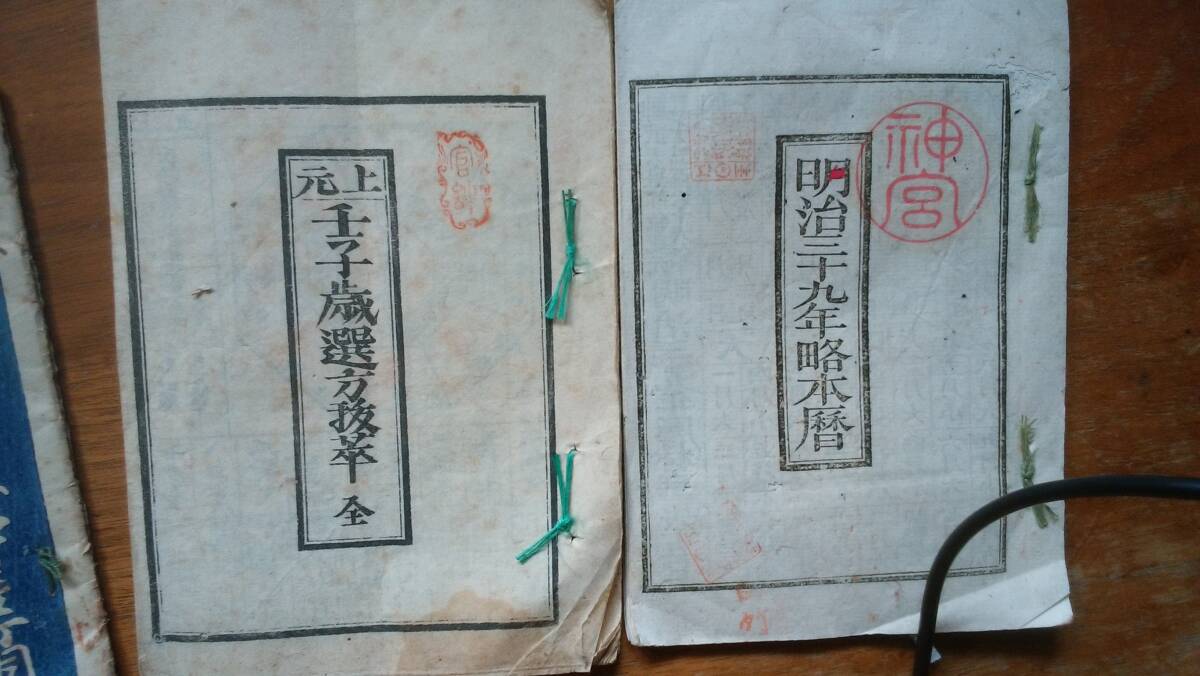 上元
壬子歳選方抜萃 全
官許
明治三十九年略本暦
神宮